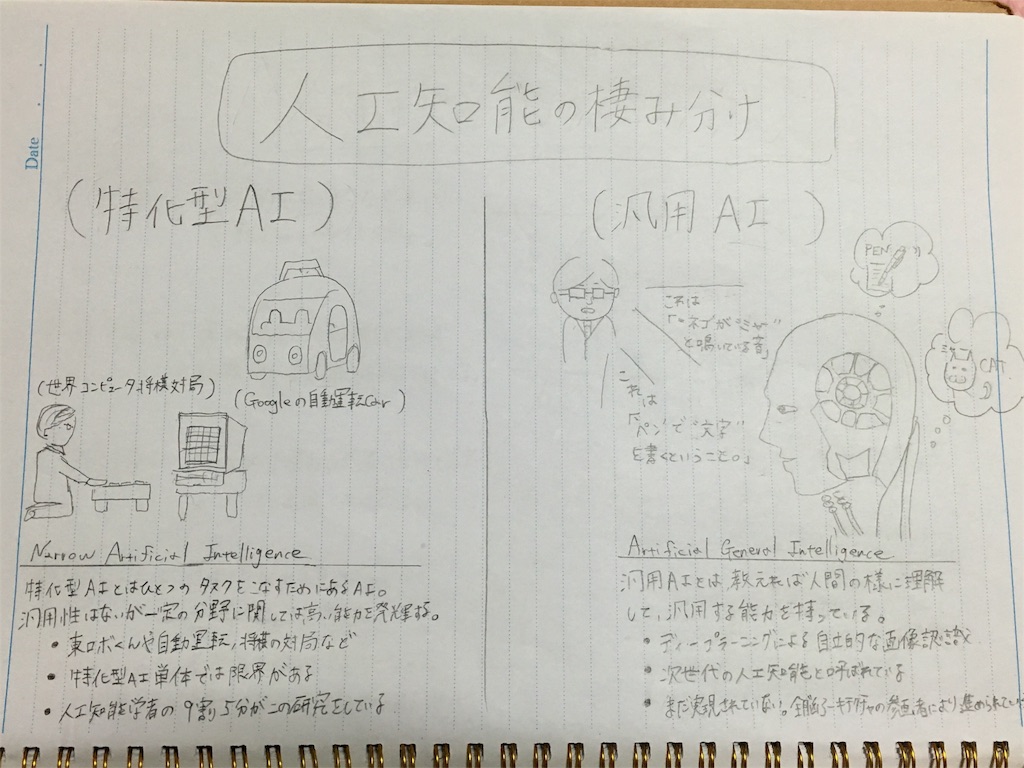 Date
人工知能の棲み分け
(特化型AI)
(世界コンピュータ将棋対局)
(Googleの自動運転Car)
Narrow Artificial Intelligence
特化型AIとはひとつのタスクをこなすためにあるAI。
汎用性はないが一定の分野に関しては高い能力を発揮する。
• 東ロボくんや自動運転,将棋の対局など
• 特化型AI単体では限界がある
• 人工知能学者の9割5分がこの研究をしている
(汎用AI)
これは
「"ネコ"が"ミャー"
と鳴いている音」
これは
「"ペン"で"文字"
を書くということ。」
PEN
CAT
Artificial General Intelligence
汎用AIとは教えれば人間の様に理解
して,汎用する能力を持っている。
• ディープラーニングによる自立的な画像認識
• 次世代の人工知能と呼ばれている
• まだ実現されていない。全脳アーキテクチャの参画者により進められてい